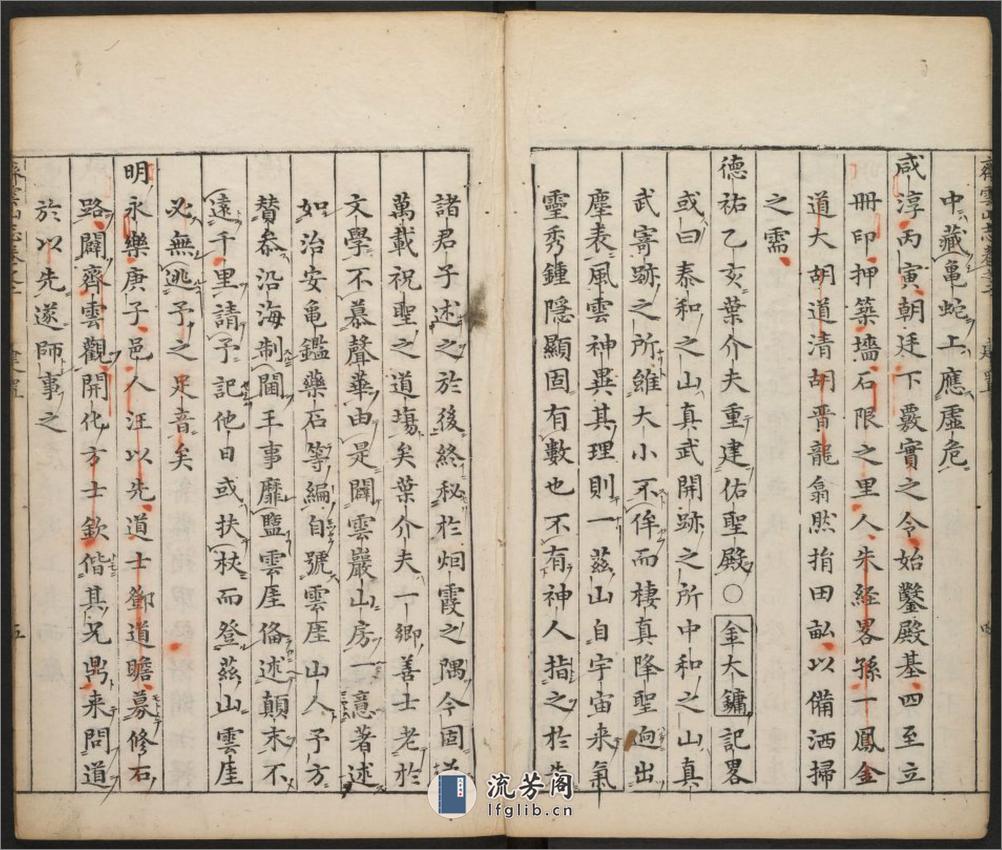 中藏亀蛇上應虛危
咸淳丙寅朝廷下覈實之令始鑿殿基四至立
冊印押築墻石限之里人朱經畧孫一鳳金
道大胡道清胡晋龍翕然指田畝以備洒掃
之需
德祐乙亥葉介夫重建佑聖殿○金大鏞記畧
或曰泰和之山真武開跡之所中和之山真
武寄跡之所雖大小不侔而棲真降聖逈出
塵表風雲神異其理則一茲山自宇宙来氣
靈秀鍾隱顯固有數也不有神人指之於
諸君子述之於後終秘於烟霞之隅今固
萬載祝聖之道塲矣葉介夫一鄉善士老於
文學不慕聲華由是闢雲巖山房一意著述
如治安亀鑑藥石等編自號雲厓山人予方
賛叅沿海制閫王事靡盬雲厓俻述顛末不
遠千里請予記他日或扶杖而登茲山雲厓
必無逃予之足音矣
明永樂庚子邑人汪以先道士鄧道瞻募修石
路闢齊雲觀開化方士欽偕其兄鼎来問道
於以先遂師事之
五
流芳阁
lfglib.cn